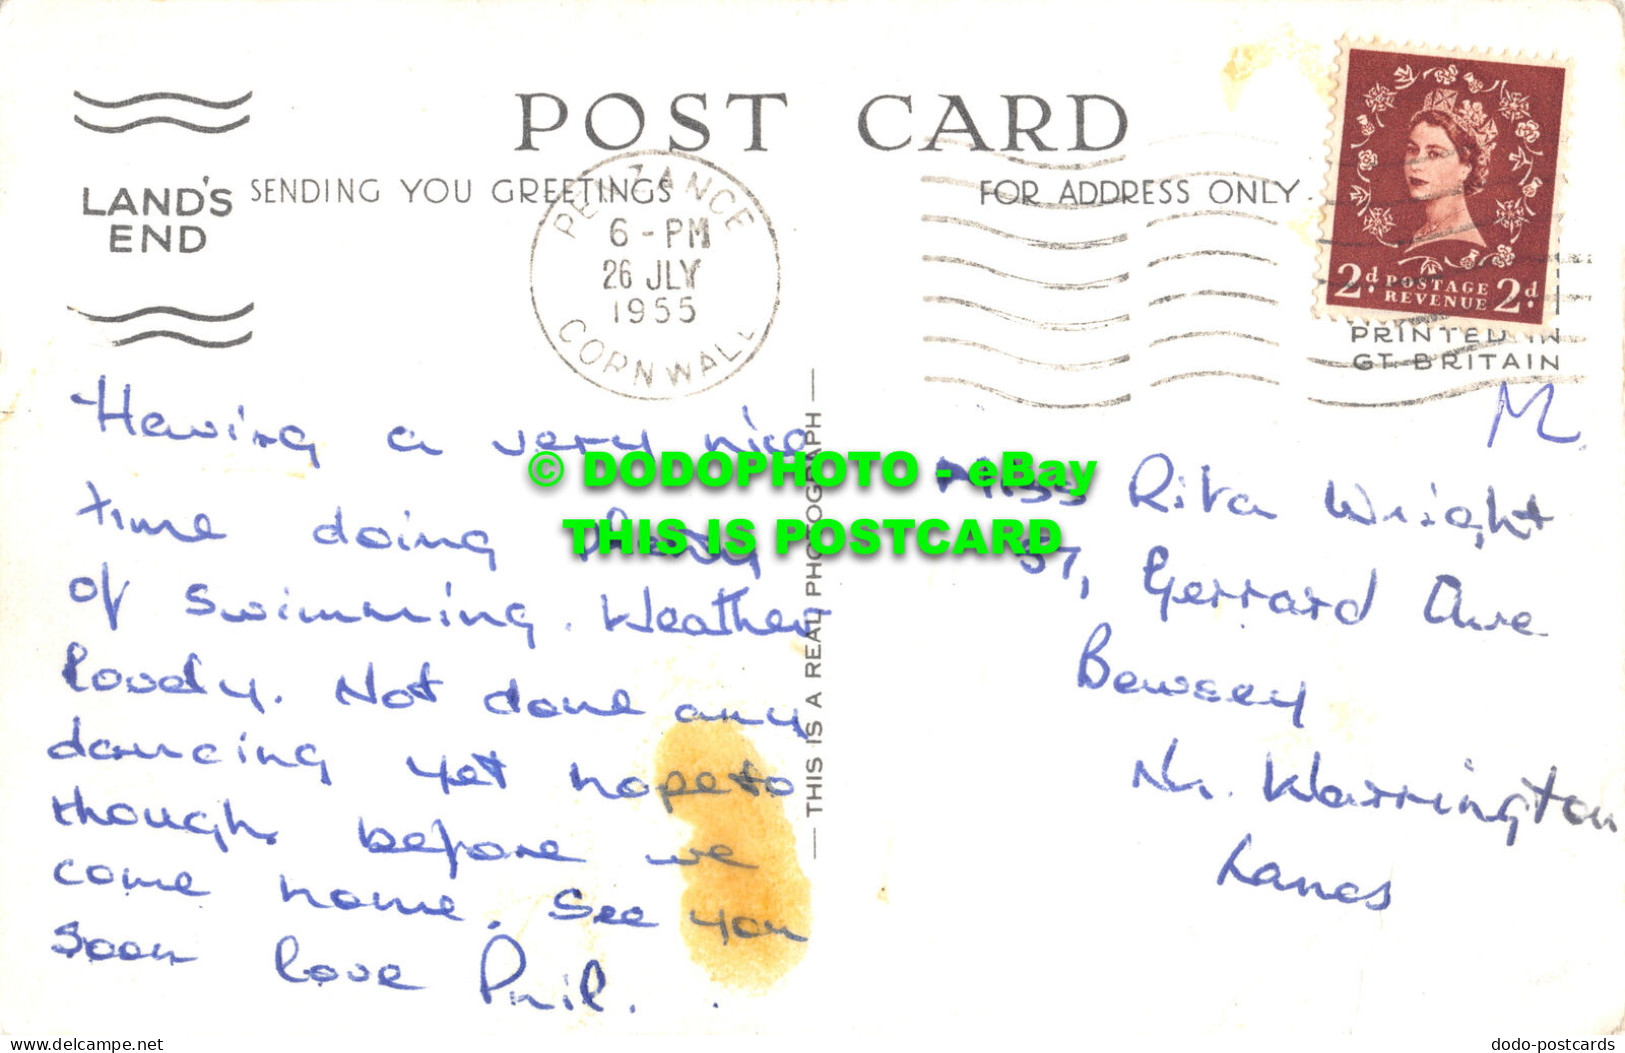 POST CARD
LAND'S
END
SENDING YOU GREETINGS
FOR ADDRESS ONLY.
PENZANCE
6 - PM
26 JLY
1955
CORNWALL
2d. POSTAGE
REVENUE 2d.
PRINTED IN
GT. BRITAIN
Having a very nice
time doing plenty
of swimming. Weather
lovely. Not done any
dancing yet hope to
though before we
come home. See you
soon love Phil.
THIS IS A REAL PHOTOGRAPH
M
Miss Rita Wright
57, Gerrard Ave
Bewsey
Nr. Warrington
Lancs
© DODOPHOTO - eBay
THIS IS POSTCARD
delcampe.net
dodo-postcards